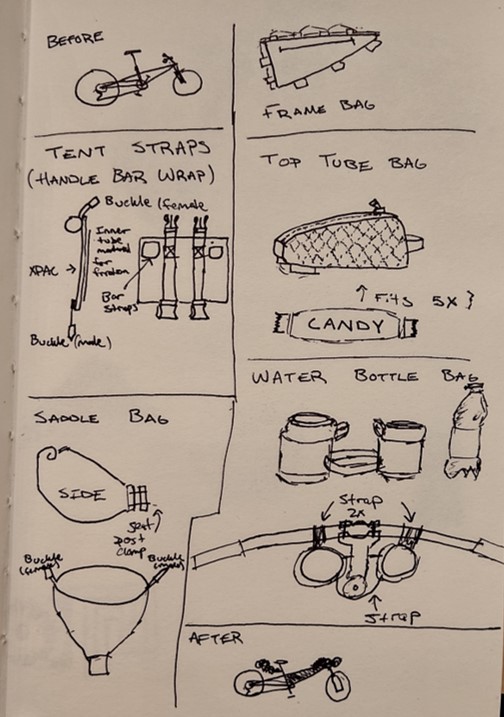 BEFORE
FRAME BAG
TENT STRAPS
(HANDLE BAR WRAP)
Buckle (female
Inner
tube material
for friction
XPAC →
Bar
straps
Buckle (male)
TOP TUBE BAG
↑ Fits 5X }
CANDY
WATER BOTTLE BAG
Strap
2x
Strap
SADDLE BAG
SIDE
seat
post
clamp
Buckle
(female)
Buckle
(male)
AFTER